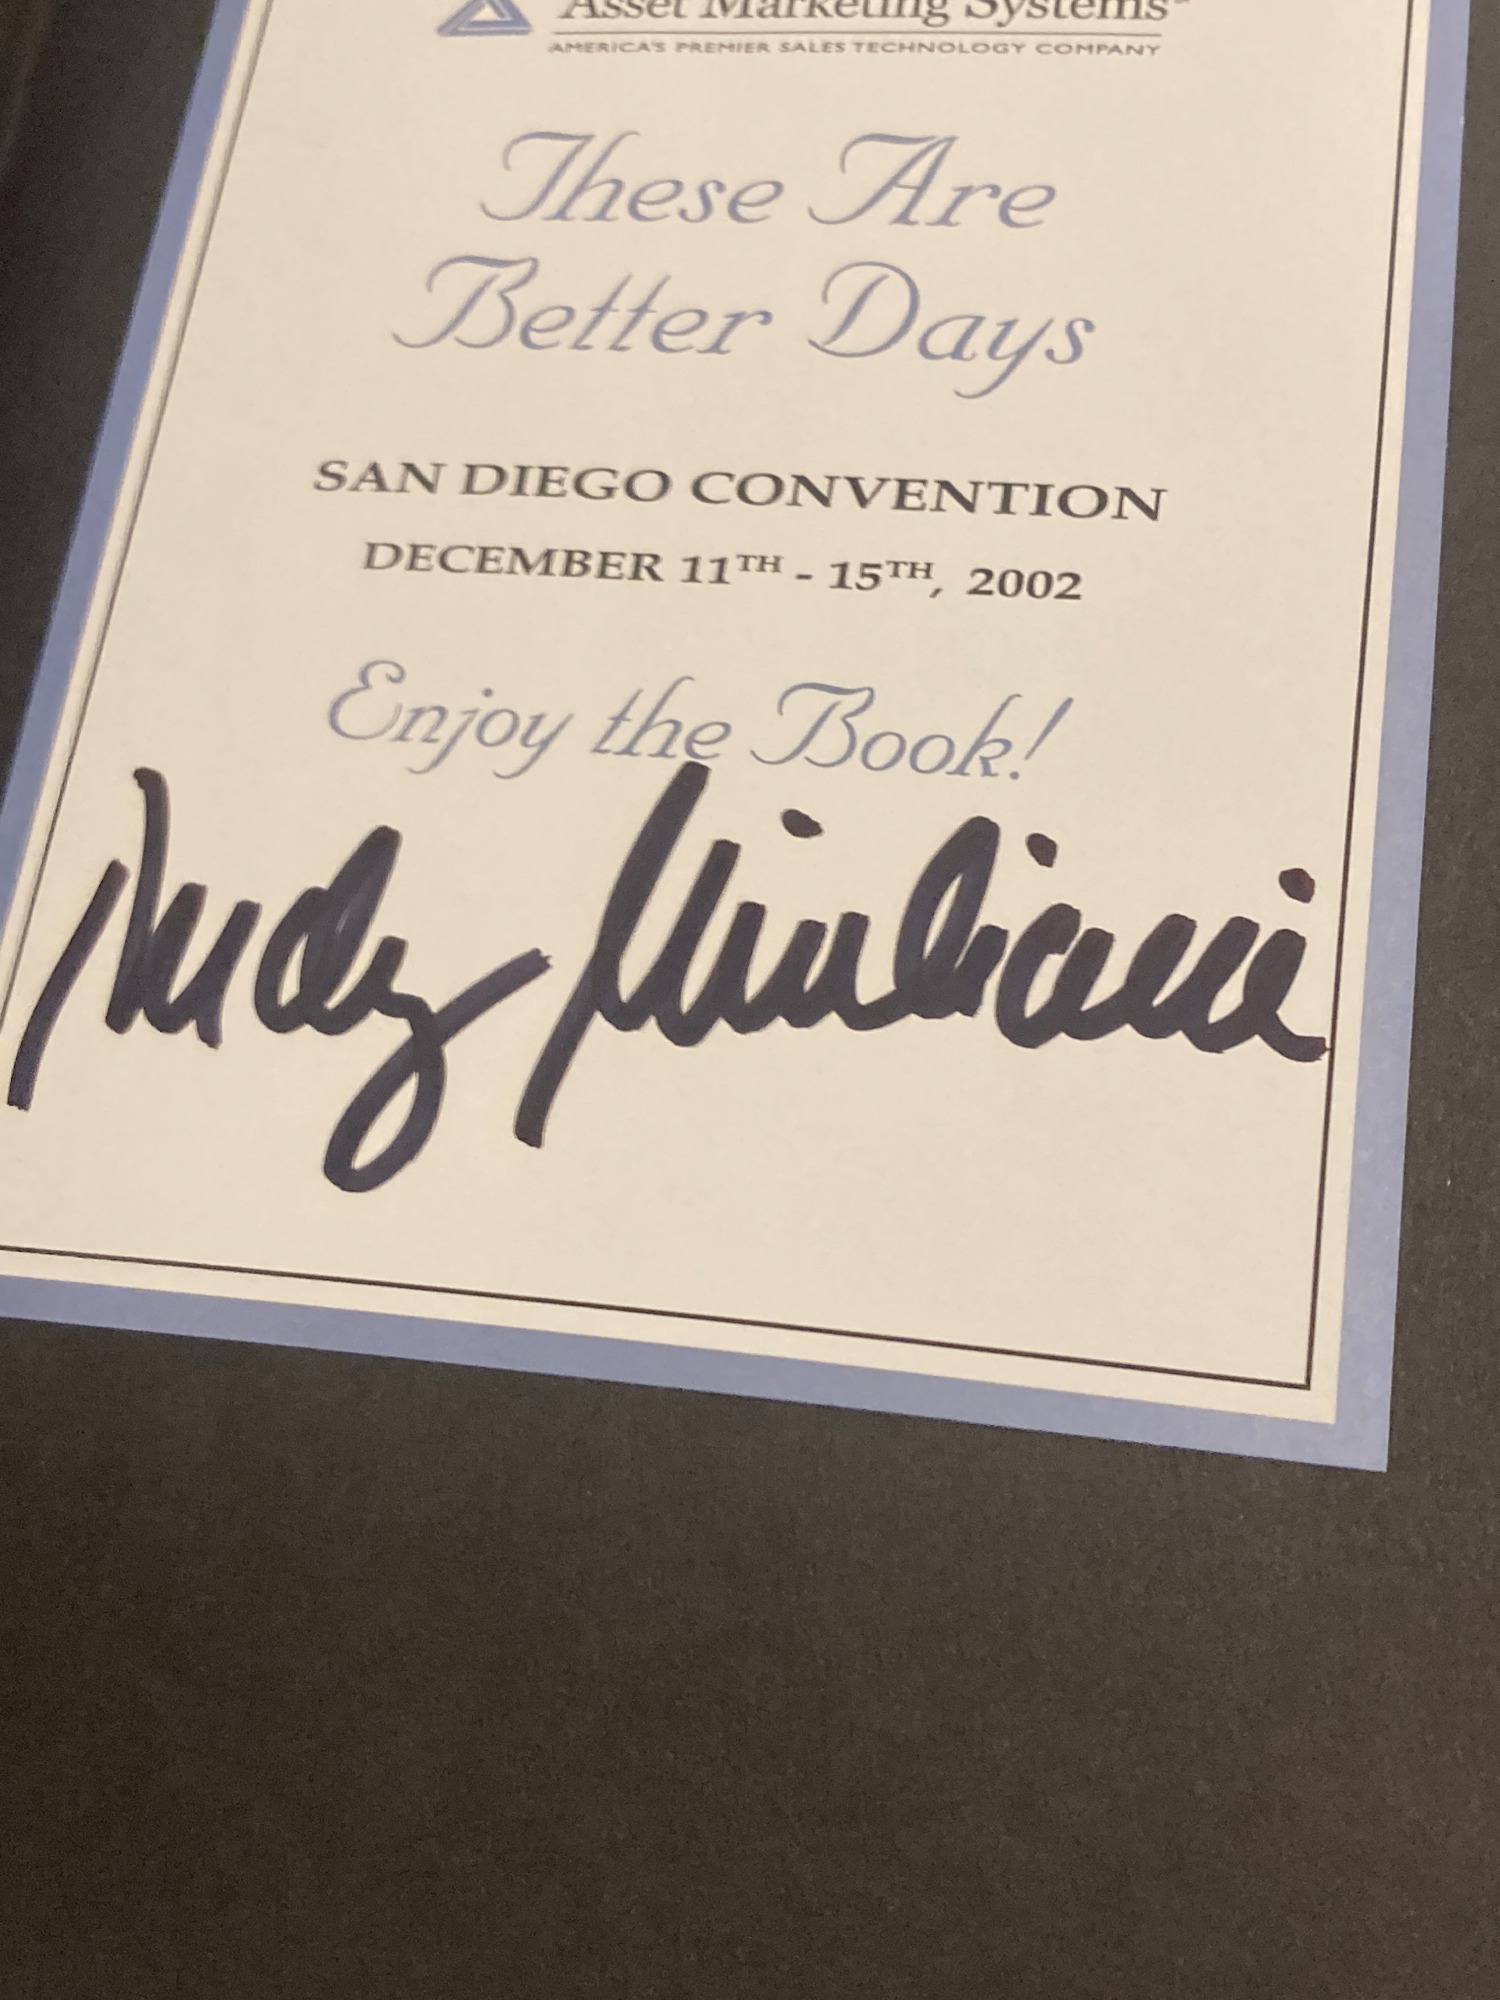 Asset Marketing Systems
AMERICA'S PREMIER SALES TECHNOLOGY COMPANY
These Are
Better Days
SAN DIEGO CONVENTION
DECEMBER 11TH - 15TH, 2002
Enjoy the Book!
Rudy Giuliani